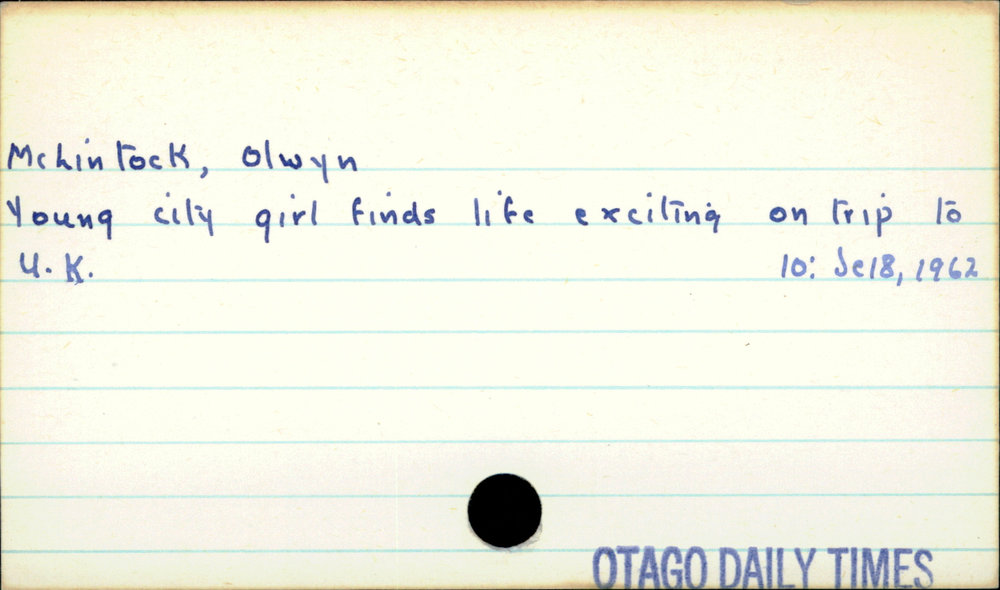 McLintock, Olwyn
Young city girl finds life exciting on trip to
U.K.
10: Je18, 1962
OTAGO DAILY TIMES